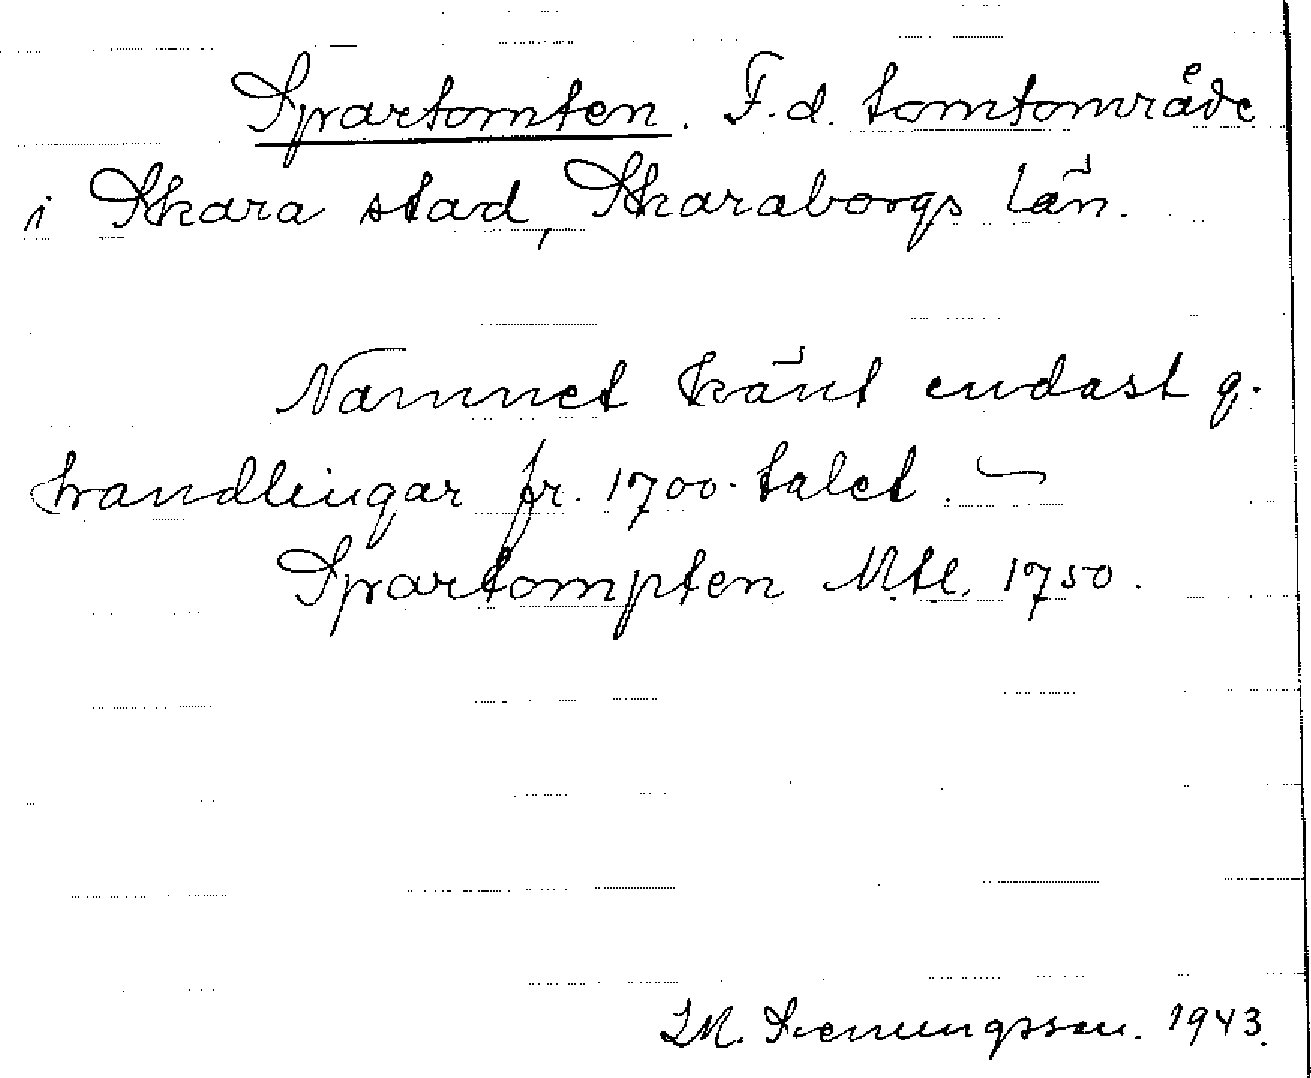 Spartomten. F.d. tomtområde
i Skara stad, Skaraborgs län.
Namnet känt endast g.
handlingar fr. 1700-talet. —
Spartompten Mtl. 1750.
1943.